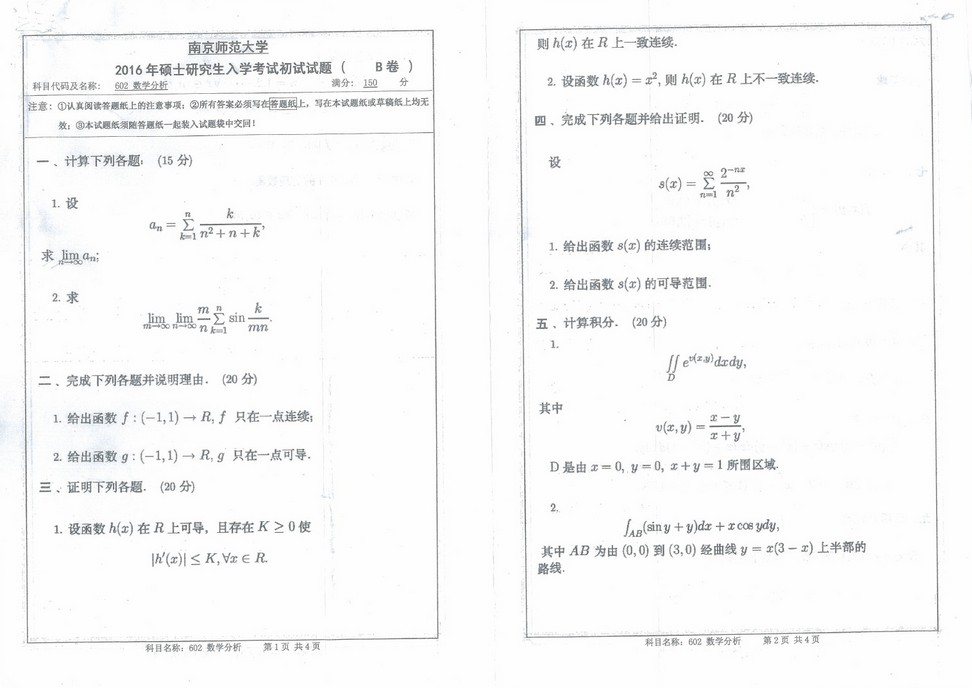 南京师范大学
2016 年硕士研究生入学考试初试试题 ( B 卷 )
科目代码及名称: 602 数学分析 满分: 150 分
注意: ①认真阅读答题纸上的注意事项; ②所有答案必须写在答题纸上, 写在本试题纸或草稿纸上均无
效; ③本试题纸须随答题纸一起装入试题袋中交回!
一 、计算下列各题: (15 分)
1. 设
a_n = \sum_{k=1}^{n} \frac{k}{n^2+n+k},
求 \lim_{n→∞} a_n;
2. 求
\lim_{m→∞} \lim_{n→∞} \frac{m}{n} \sum_{k=1}^{n} \sin \frac{k}{mn}.
二 、完成下列各题并说明理由. (20 分)
1. 给出函数 f : (−1, 1) → R, f 只在一点连续;
2. 给出函数 g : (−1, 1) → R, g 只在一点可导.
三 、证明下列各题. (20 分)
1. 设函数 h(x) 在 R 上可导, 且存在 K ≥ 0 使
|h′(x)| ≤ K, ∀x ∈ R.
科目名称: 602 数学分析 第 1 页 共 4 页
则 h(x) 在 R 上一致连续.
2. 设函数 h(x) = x², 则 h(x) 在 R 上不一致连续.
四 、完成下列各题并给出证明. (20 分)
设
s(x) = \sum_{n=1}^{∞} \frac{2^{-nx}}{n^2},
1. 给出函数 s(x) 的连续范围;
2. 给出函数 s(x) 的可导范围.
五 、计算积分. (20 分)
1.
\iint_D e^{v(x,y)} dxdy,
其中
v(x, y) = \frac{x − y}{x + y},
D 是由 x = 0, y = 0, x + y = 1 所围区域.
2.
\int_{AB} (sin y + y)dx + x cos ydy,
其中 AB 为由 (0, 0) 到 (3, 0) 经曲线 y = x(3 − x) 上半部的
路线.
科目名称: 602 数学分析 第 2 页 共 4 页